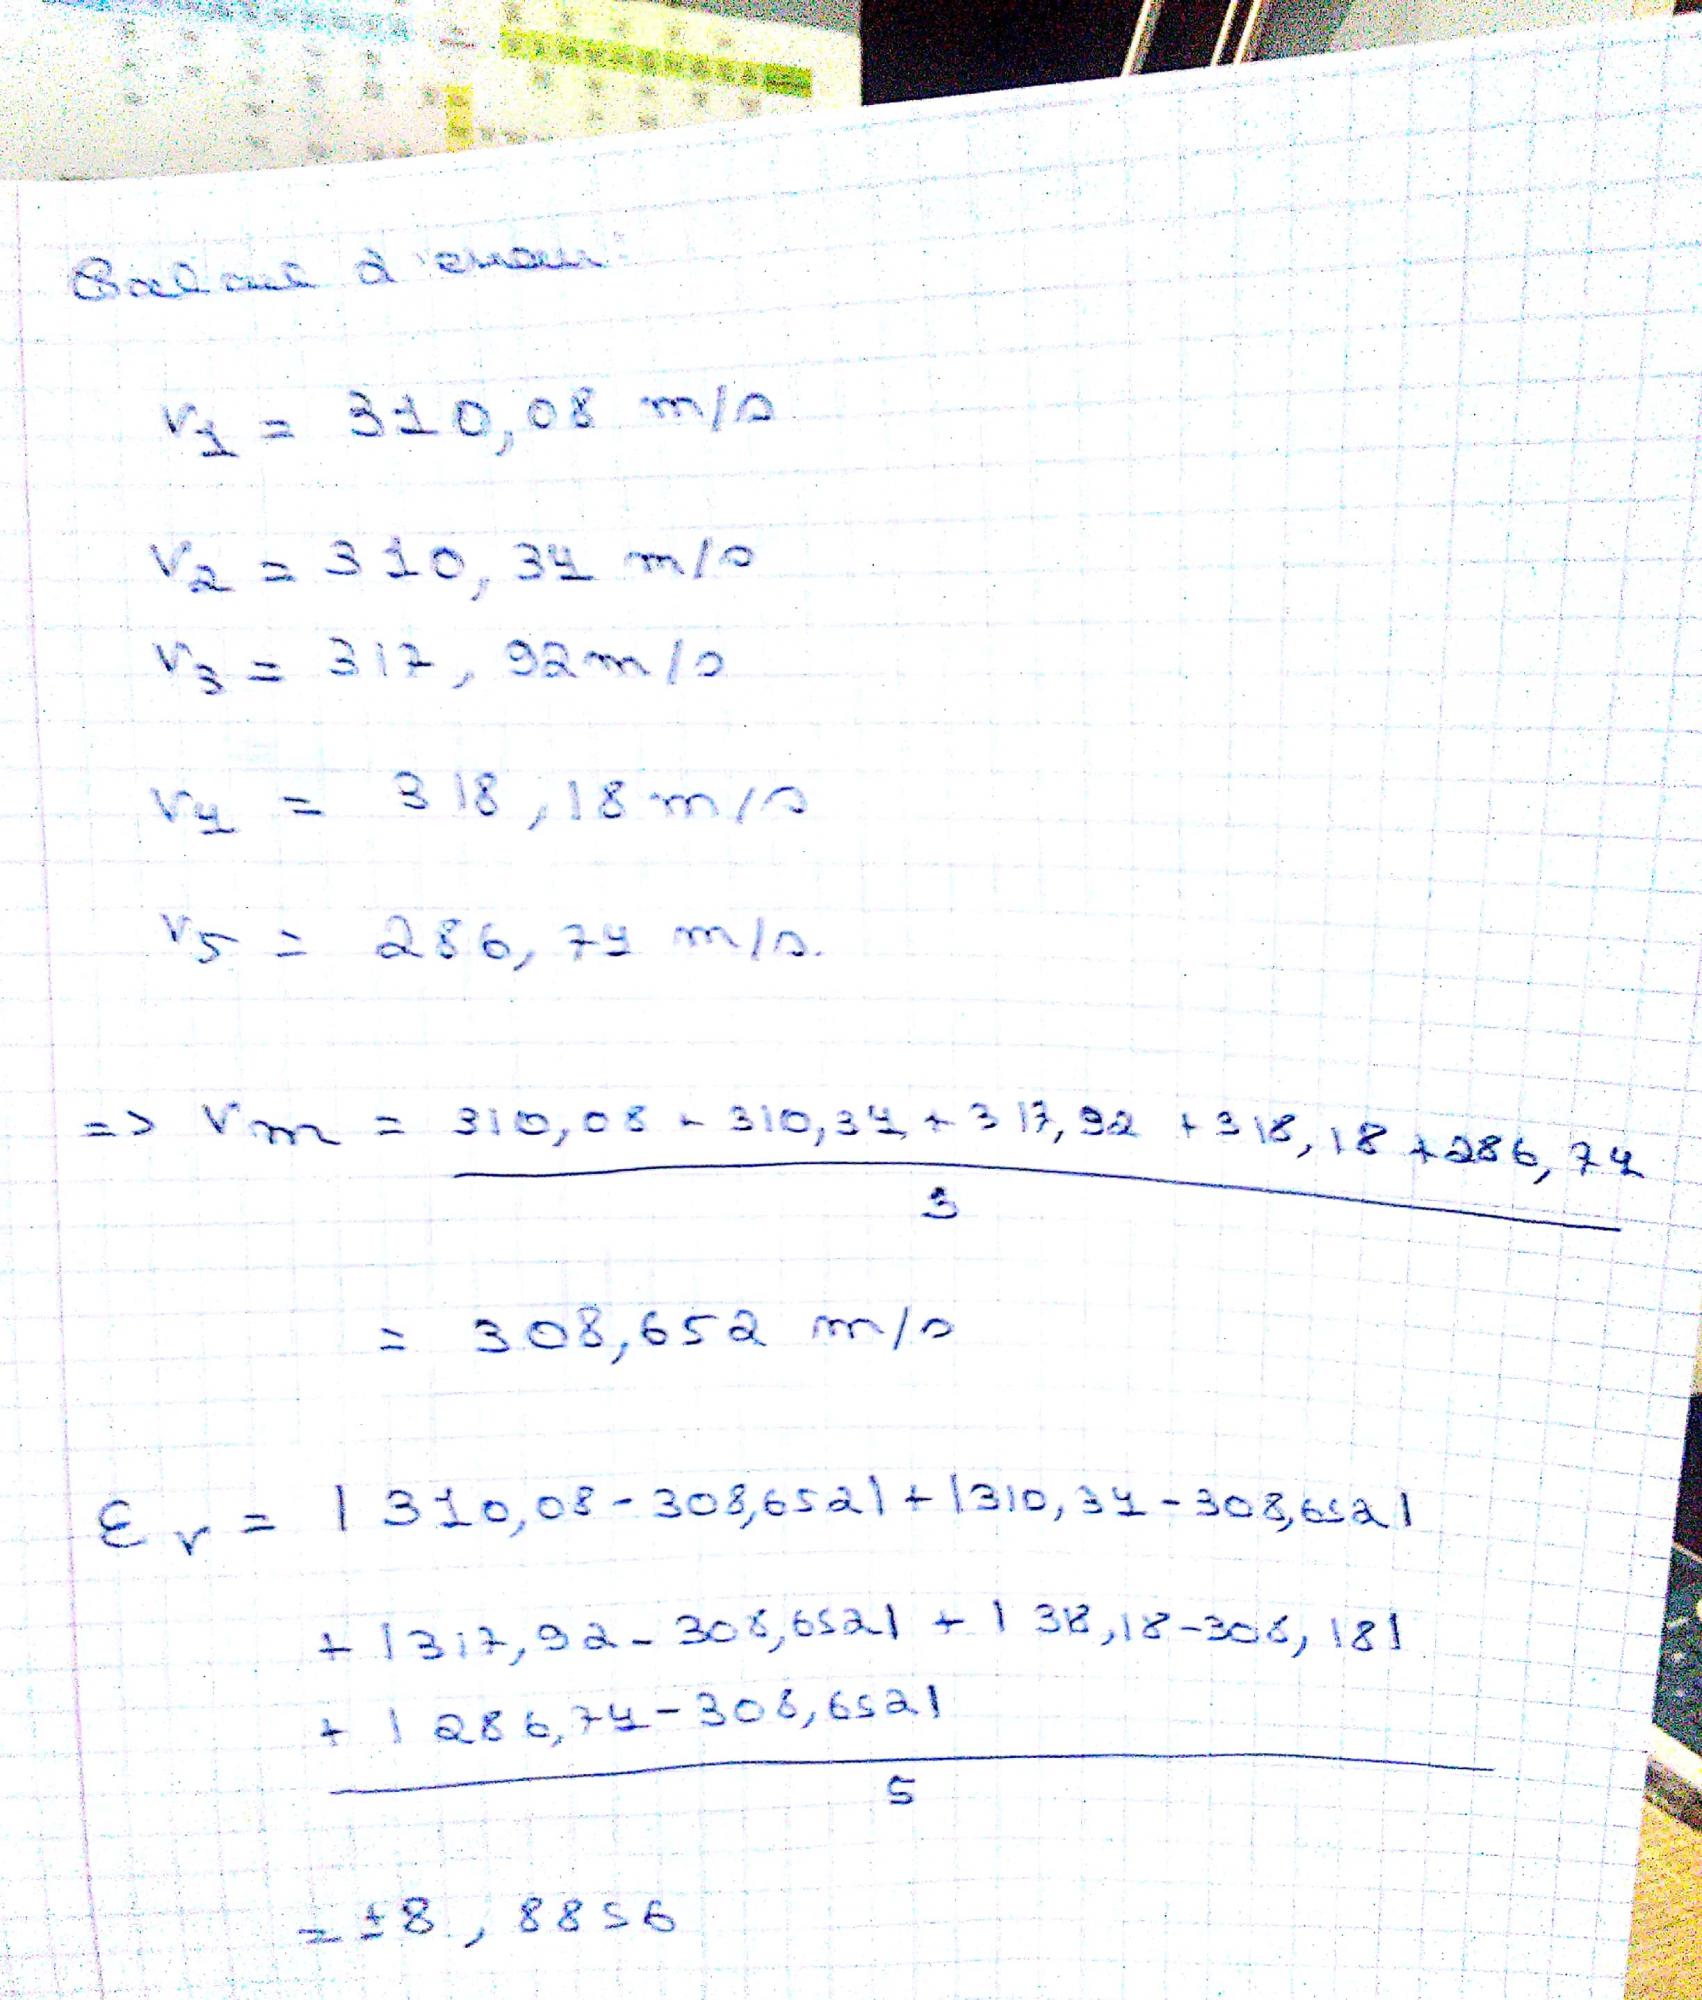 Calcul d'erreur:
V1 = 310,08 m/s
V2 = 310,34 m/s
V3 = 317,92 m/s
V4 = 318,18 m/s
V5 = 286,74 m/s.
=> Vm = 310,08 + 310,34 + 317,92 + 318,18 + 286,74
5
= 308,652 m/s
Ɛv = |310,08 - 308,652| + |310,34 - 308,652|
+ |317,92 - 308,652| + |318,18 - 308,18|
+ |286,74 - 308,652|
5
= ±8,8856